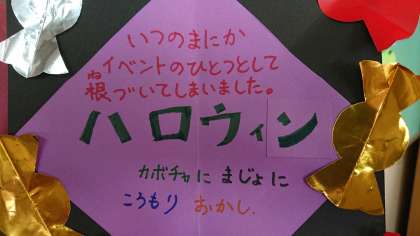 いつのまにか
イベントのひとつとして
ね
根づいてしまいました。
ハロウィン
カボチャに まじょに
こうもり おかし.